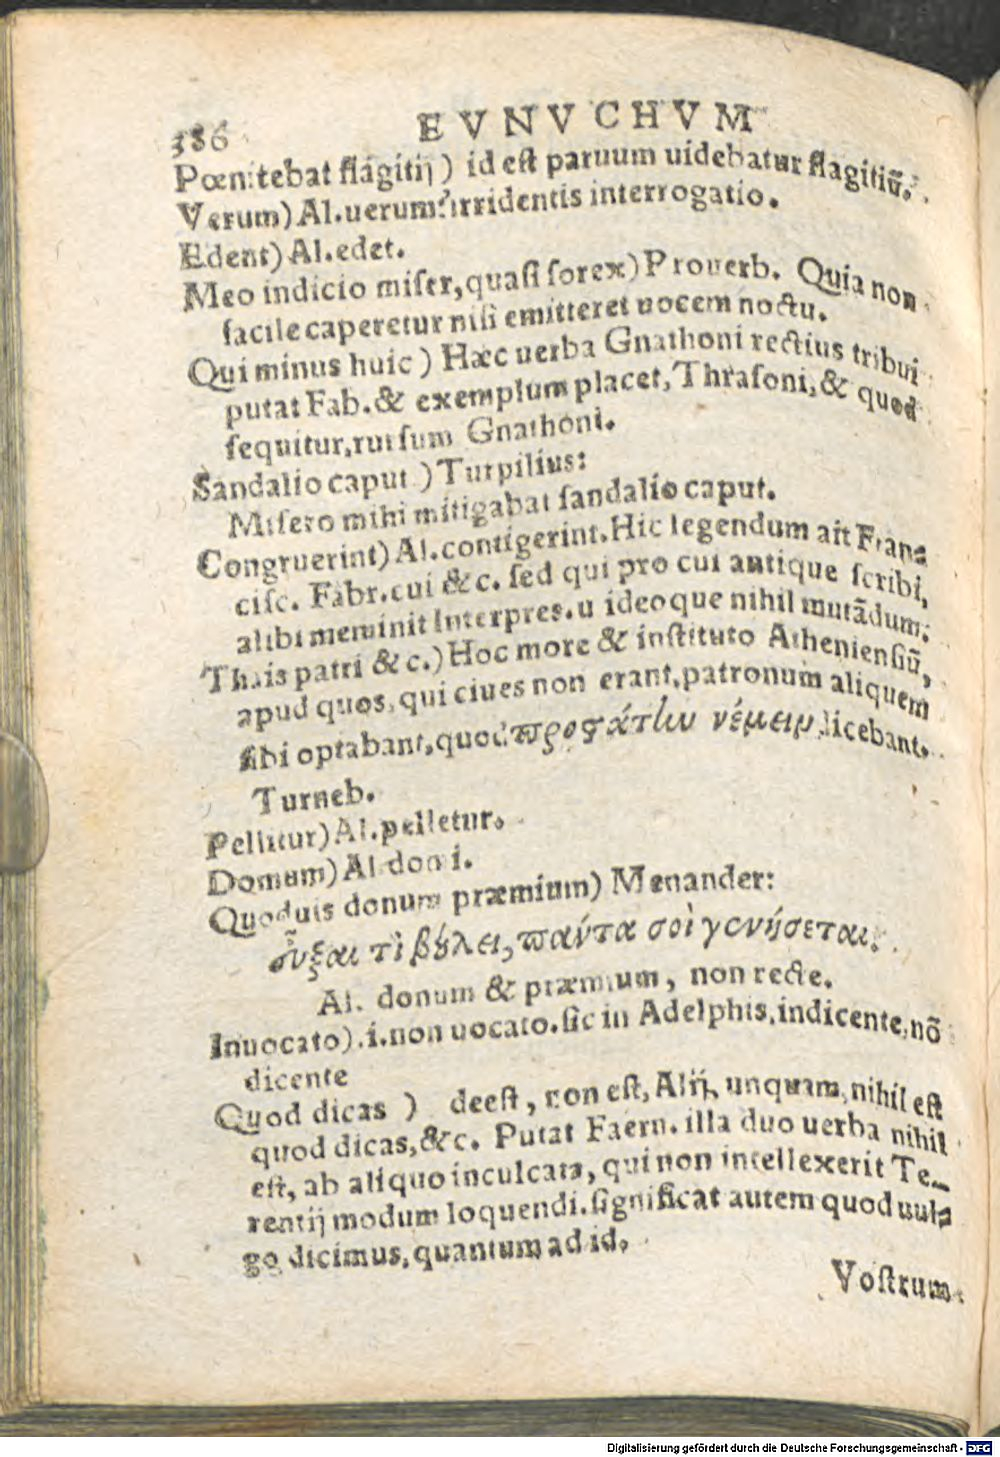 386 EVNVCHVM
Pœnitebat flagitij) id est paruum uidebatur flagitiũ.
Verum) Al. uerum? irridentis interrogatio.
Edent) Al. edet.
Meo indicio miser, quasi sorex) Prouerb. Quia non
facile caperetur nisi emitteret uocem noctu.
Qui minus huic) Hæc uerba Gnathoni rectius tribui
putat Fab. & exemplum placet, Thrasoni, & quod
sequitur, rursum Gnathoni.
Sandalio caput) Turpilius:
Misero mihi mitigabat sandalio caput.
Congruerint) Al. contigerint. Hic legendum ait Fran=
cisc. Fabr. cui &c. sed qui pro cui antique scribi,
alibi meminit Interpres. u ideoque nihil mutãdum:
Thais patri &c.) Hoc more & instituto Atheniensiũ,
apud quos, qui ciues non erant, patronum aliquem
sibi optabant, quod προϛάτην νέμειν dicebant.
Turneb.
Pellitur) Al. pelletur.
Domum) Al domi.
Quoduis donum præmium) Menander:
εὖξαι τὶ βούλει, παντα σοὶ γενήσεται.
Al. donum & præmium, non recte.
Inuocato) .i. non uocato. sic in Adelphis, indicente, nõ
dicente
Quod dicas) deest, non est, Alij, unquam, nihil est
quod dicas, &c. Putat Faern. illa duo uerba nihil
est, ab aliquo inculcata, qui non intellexerit Te-
rentij modum loquendi. significat autem quod uul=
go dicimus, quantum ad id.
Vostrum
Digitalisierung gefördert durch die Deutsche Forschungsgemeinschaft - DFG